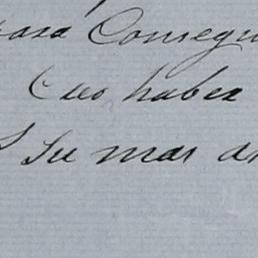 para Consegu
Creo haber
Su mas a